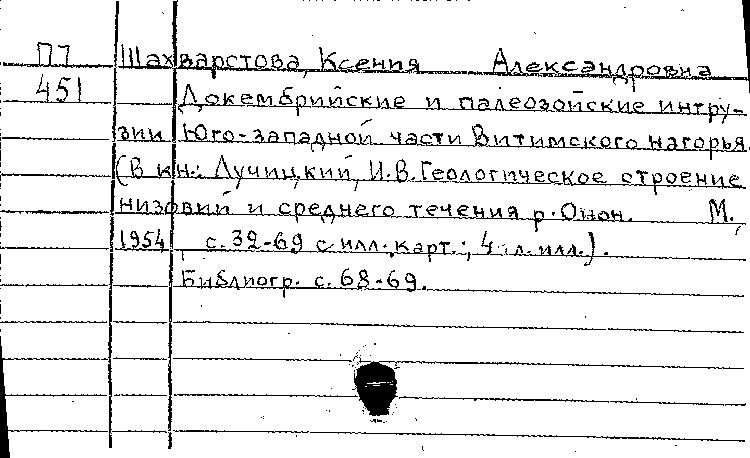 П7 Шахварстова, Ксения Александровна
451 Докембрийские и палеозойские интру-
зии Юго-западной части Витимского нагорья.
(В кн.: Лучицкий, И.В. Геологическое строение
низовий и среднего течения р. Онон. М.,
1954, с. 32-69 с илл., карт.; 4 л. илл.).
Библиогр. с. 68-69.